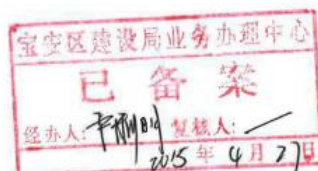 宝安区建设局业务办理中心
已备案
经办人： 复核人：
2015年4月27日